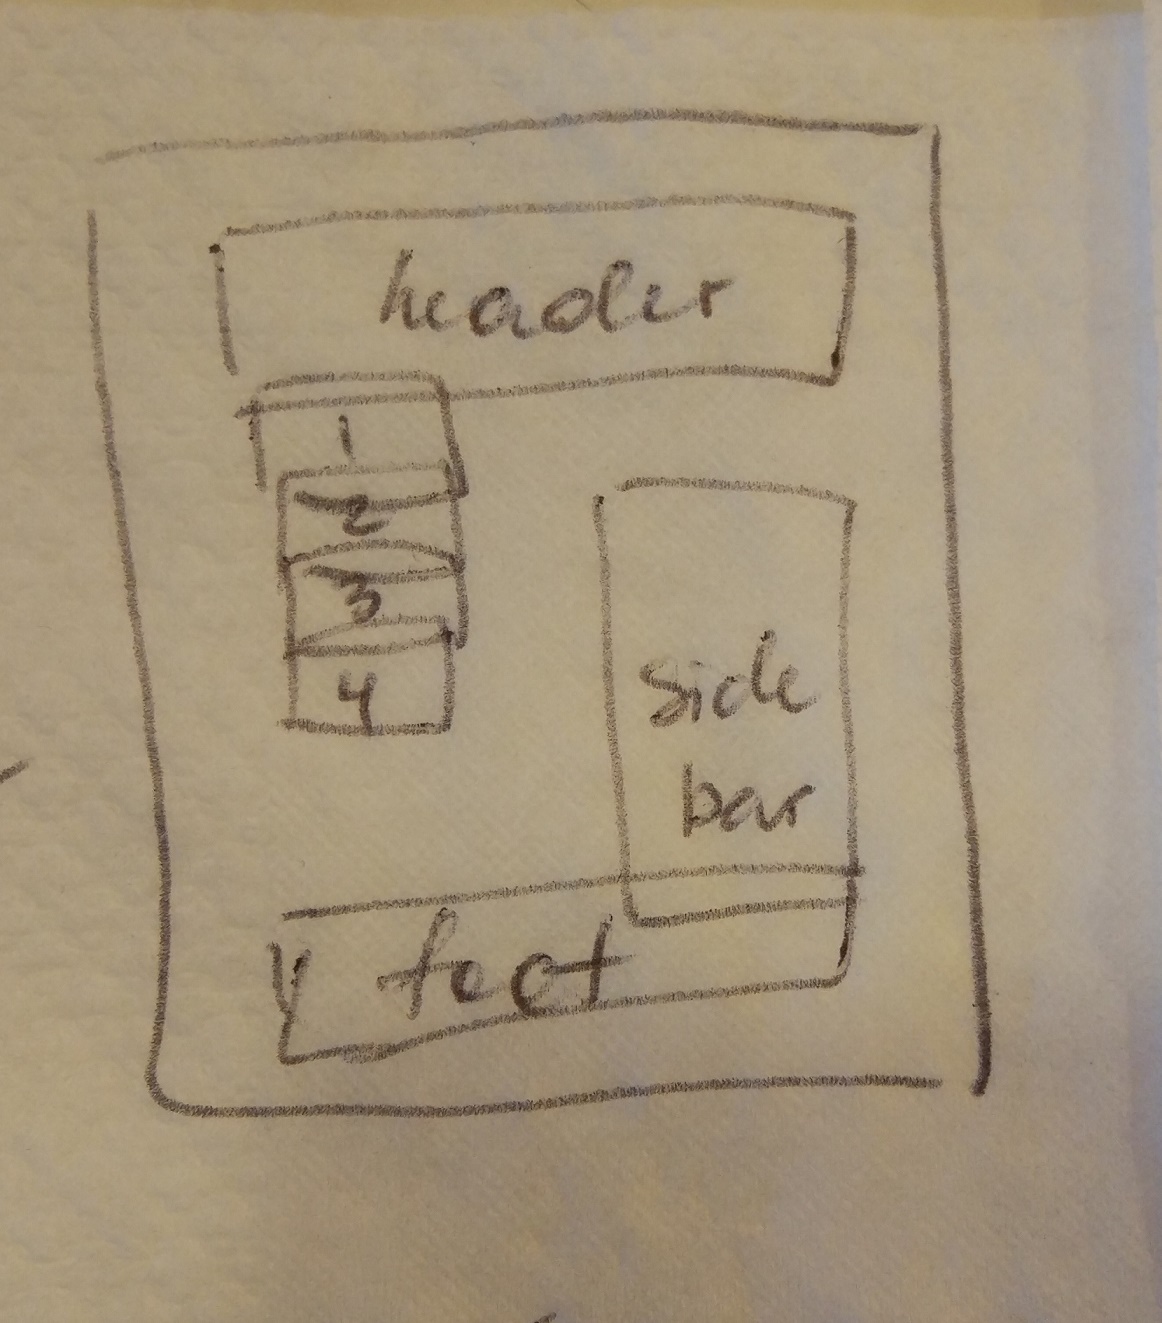 header
1
2
3
4
side
bar
foot